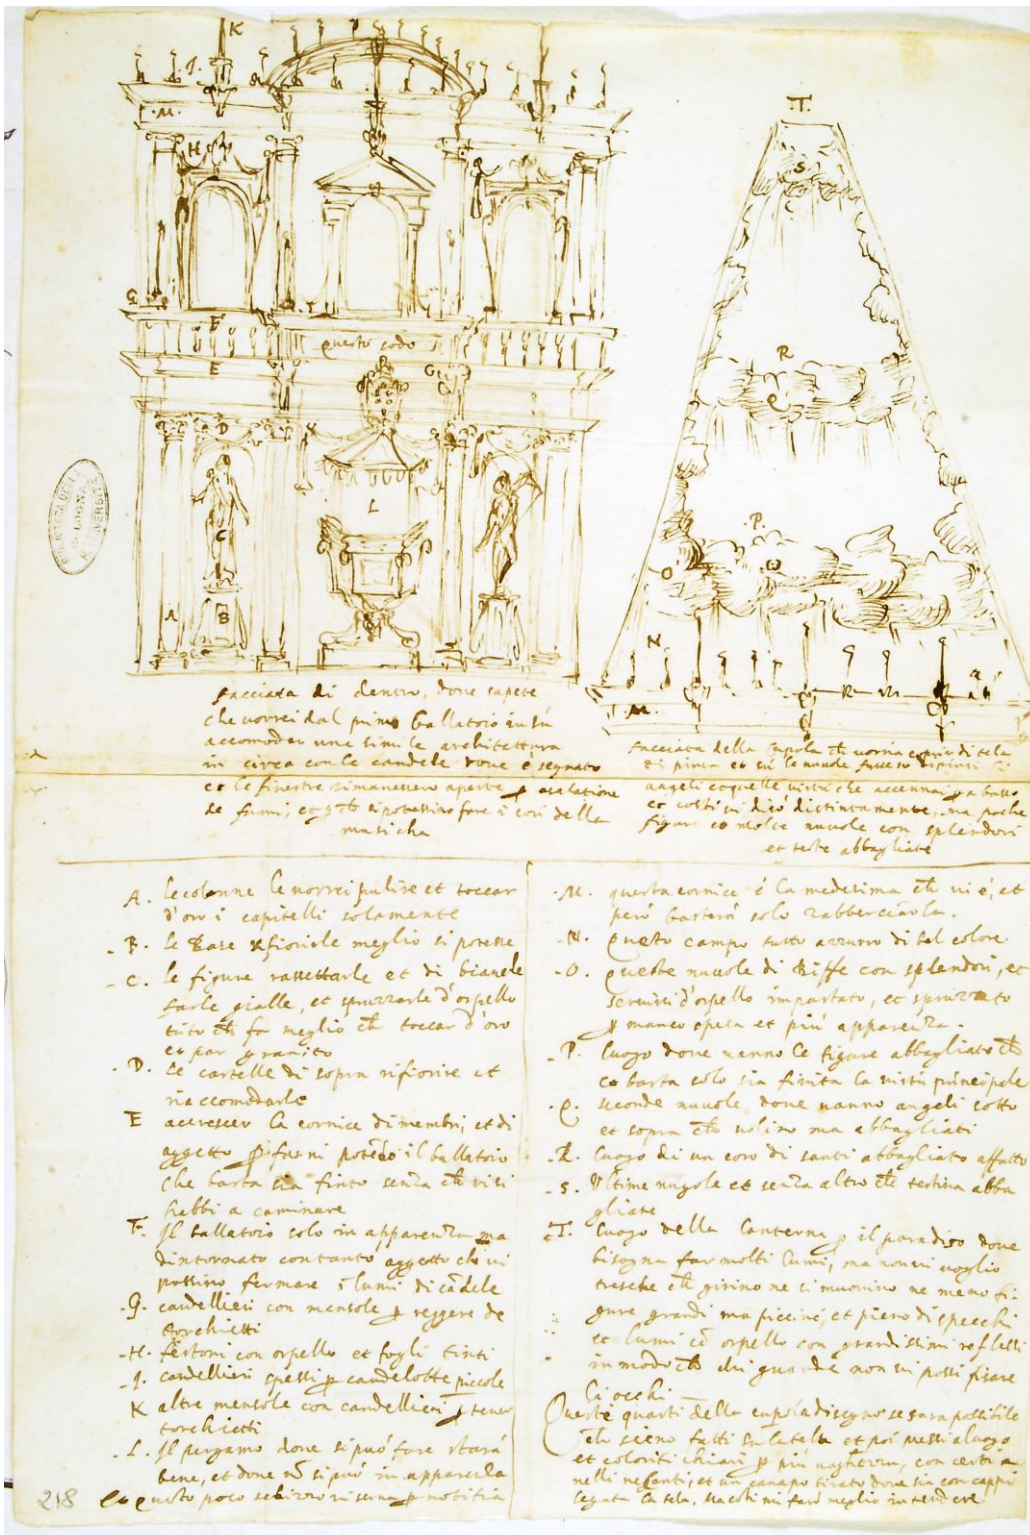 K
J.
.M.
H
G
F
F
questo sodo
E
G
D
L
C
A
B
.T.
S
R
Q
.P.
O
Q
N
.M.
facciata di dentro, dove sapete
che vorrei dal primo ballatoio in sù
accomodar una simile architettura
in circa con le candele dove è segnato
et le finestre rimanessero aperte p esalatione
de fumi, et si potessino fare i cori della
musicha
facciata della cupola ch vorria coprir di tela
di pinta et sù le nuvole fussero dipinti
angeli et quelle virtù che accennai a basso
et costì vi dico distintamente, ma poche
figure et molte nuvole con splendori
et teste abbagliate
A. le colonne le vorrei pulire et toccar
d'oro i capitelli solamente
- B. le Base rifiorirle meglio si potesse
- C. le figure rassettarle et di bianche
farle gialle, et spruzzarle d'orpello
tuto ch fa meglio ch toccar d'oro
et par granito
- D. Le cartelle di sopra rifiorire et
riaccomodarle
E accrescer la cornice di membri, et di
aggetto p farvi potedo il ballatoio
che basta sia finto senza ch vi si
habbi a caminare
F. Il ballatoio solo in apparenza ma
dintornato con tanto aggetto che vi
possino fermare i lumi di cădele
- G. candellieri con mensole p reggere de
torchietti
- H. festoni con orpello et fogli tinti
- J. candellieri spessi p candelotte piccole
K altre mensole con candellieri p tener
torchietti
- L. Il pergamo dove si può fare starà
bene, et dove nõ si può in apparenza
et questo poco schizzo vi serva p notitia
218
. M. questa cornice è la medesima ch vi è, et
però basterà solo rabberciarla.
- N. Questo campo tutto azzurro di bel colore
- O. queste nuvole di Biffe con splendori, et
servirsi d'orpello impastato, et spruzzato
p manco spesa et più apparenza.
- P. luogo dove vanno le figure abbagliate ch
co basta solo sia finita la virtù principale
. Q. seconde nuvole dove vanno angeli sotto
et sopra ch volino ma abbagliati
- R. luogo di un coro di santi abbagliato affatto
- S. Ultime nugole et senza altro ch testina abba
gliate
T. luogo della lanterna p il paradiso dove
bisogna far molti lumi, ma non vi voglio
tresche ch girino ne si muovino ne meno fi
gure grandi ma piccine, et pieno di specchi
et lumi cõ orpello con grandissimi reflessi
in modo ch chi guarda non vi possi fisare
li occhi
Questi quarti della cupola disegno se sara possibile
ch sieno fatti su la tela et poi messi a luogo
et coloriti chiari p più vaghezza, con certi a
nelli et un canapo tirato dove sia con cappi
legata la tela. Ma costì mi farò meglio intendere